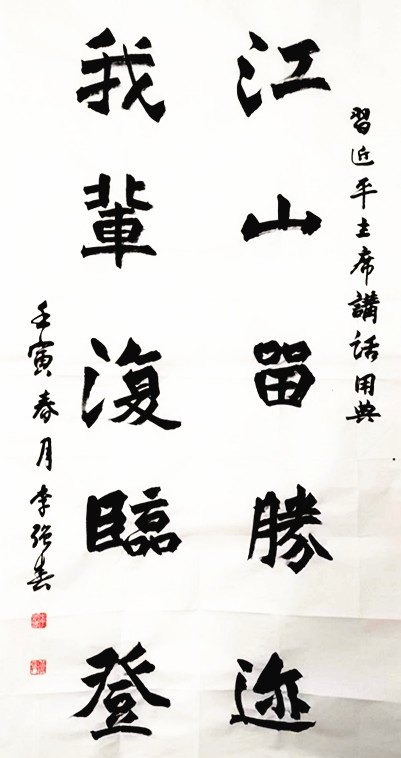 習近平主席講話用典
江山留勝迹
我輩復臨登
壬寅春月李强書